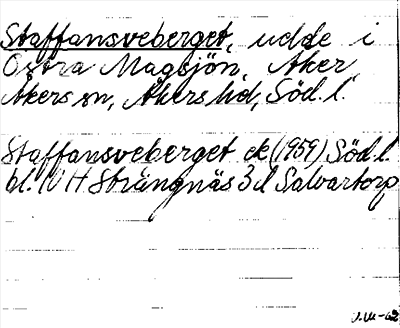 Staffansveberget, udde i
Östra Magsjön, Åker,
Åkers sn, Åkers hd, Söd. l.
Staffansveberget ek (1959) Söd. l.
bl. 10 H Strängnäs 3 d Salvartorp
J.M-62